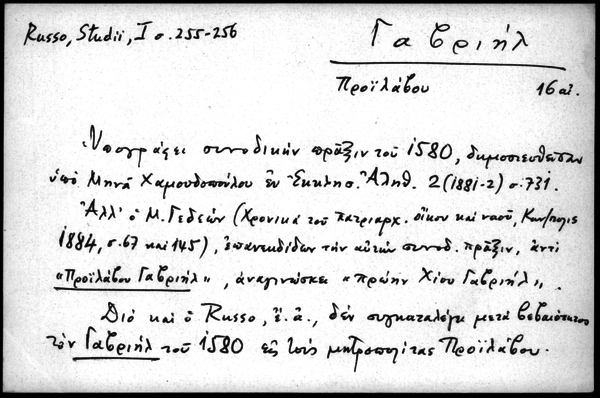 Russo, Studii, I σ. 255-256
Γαβριήλ
Προϊλάβου 16 αἰ.
Ὑπογράφει συνοδικὴν πρᾶξιν τοῦ 1580, δημοσιευθεῖσαν
ὑπὸ Μηνᾶ Χαμουδοπούλου ἐν Ἐκκλησ. Ἀληθ. 2 (1881-2) σ. 731.
Ἀλλ' ὁ Μ. Γεδεὼν (Χρονικὰ τοῦ πατριαρχ. οἴκου καὶ ναοῦ, Κων/πολις
1884, σ. 67 καὶ 145), ἐπανεκδίδων τὴν αὐτὴν συνοδ. πρᾶξιν, ἀντὶ
«Προϊλάβου Γαβριήλ», ἀναγινώσκει «πρώην Χίου Γαβριήλ».
Διὸ καὶ ὁ Russo, ἔ.ἀ., δὲν συγκαταλέγει μετὰ βεβαιότητος
τὸν Γαβριὴλ τοῦ 1580 εἰς τοὺς μητροπολίτας Προϊλάβου.